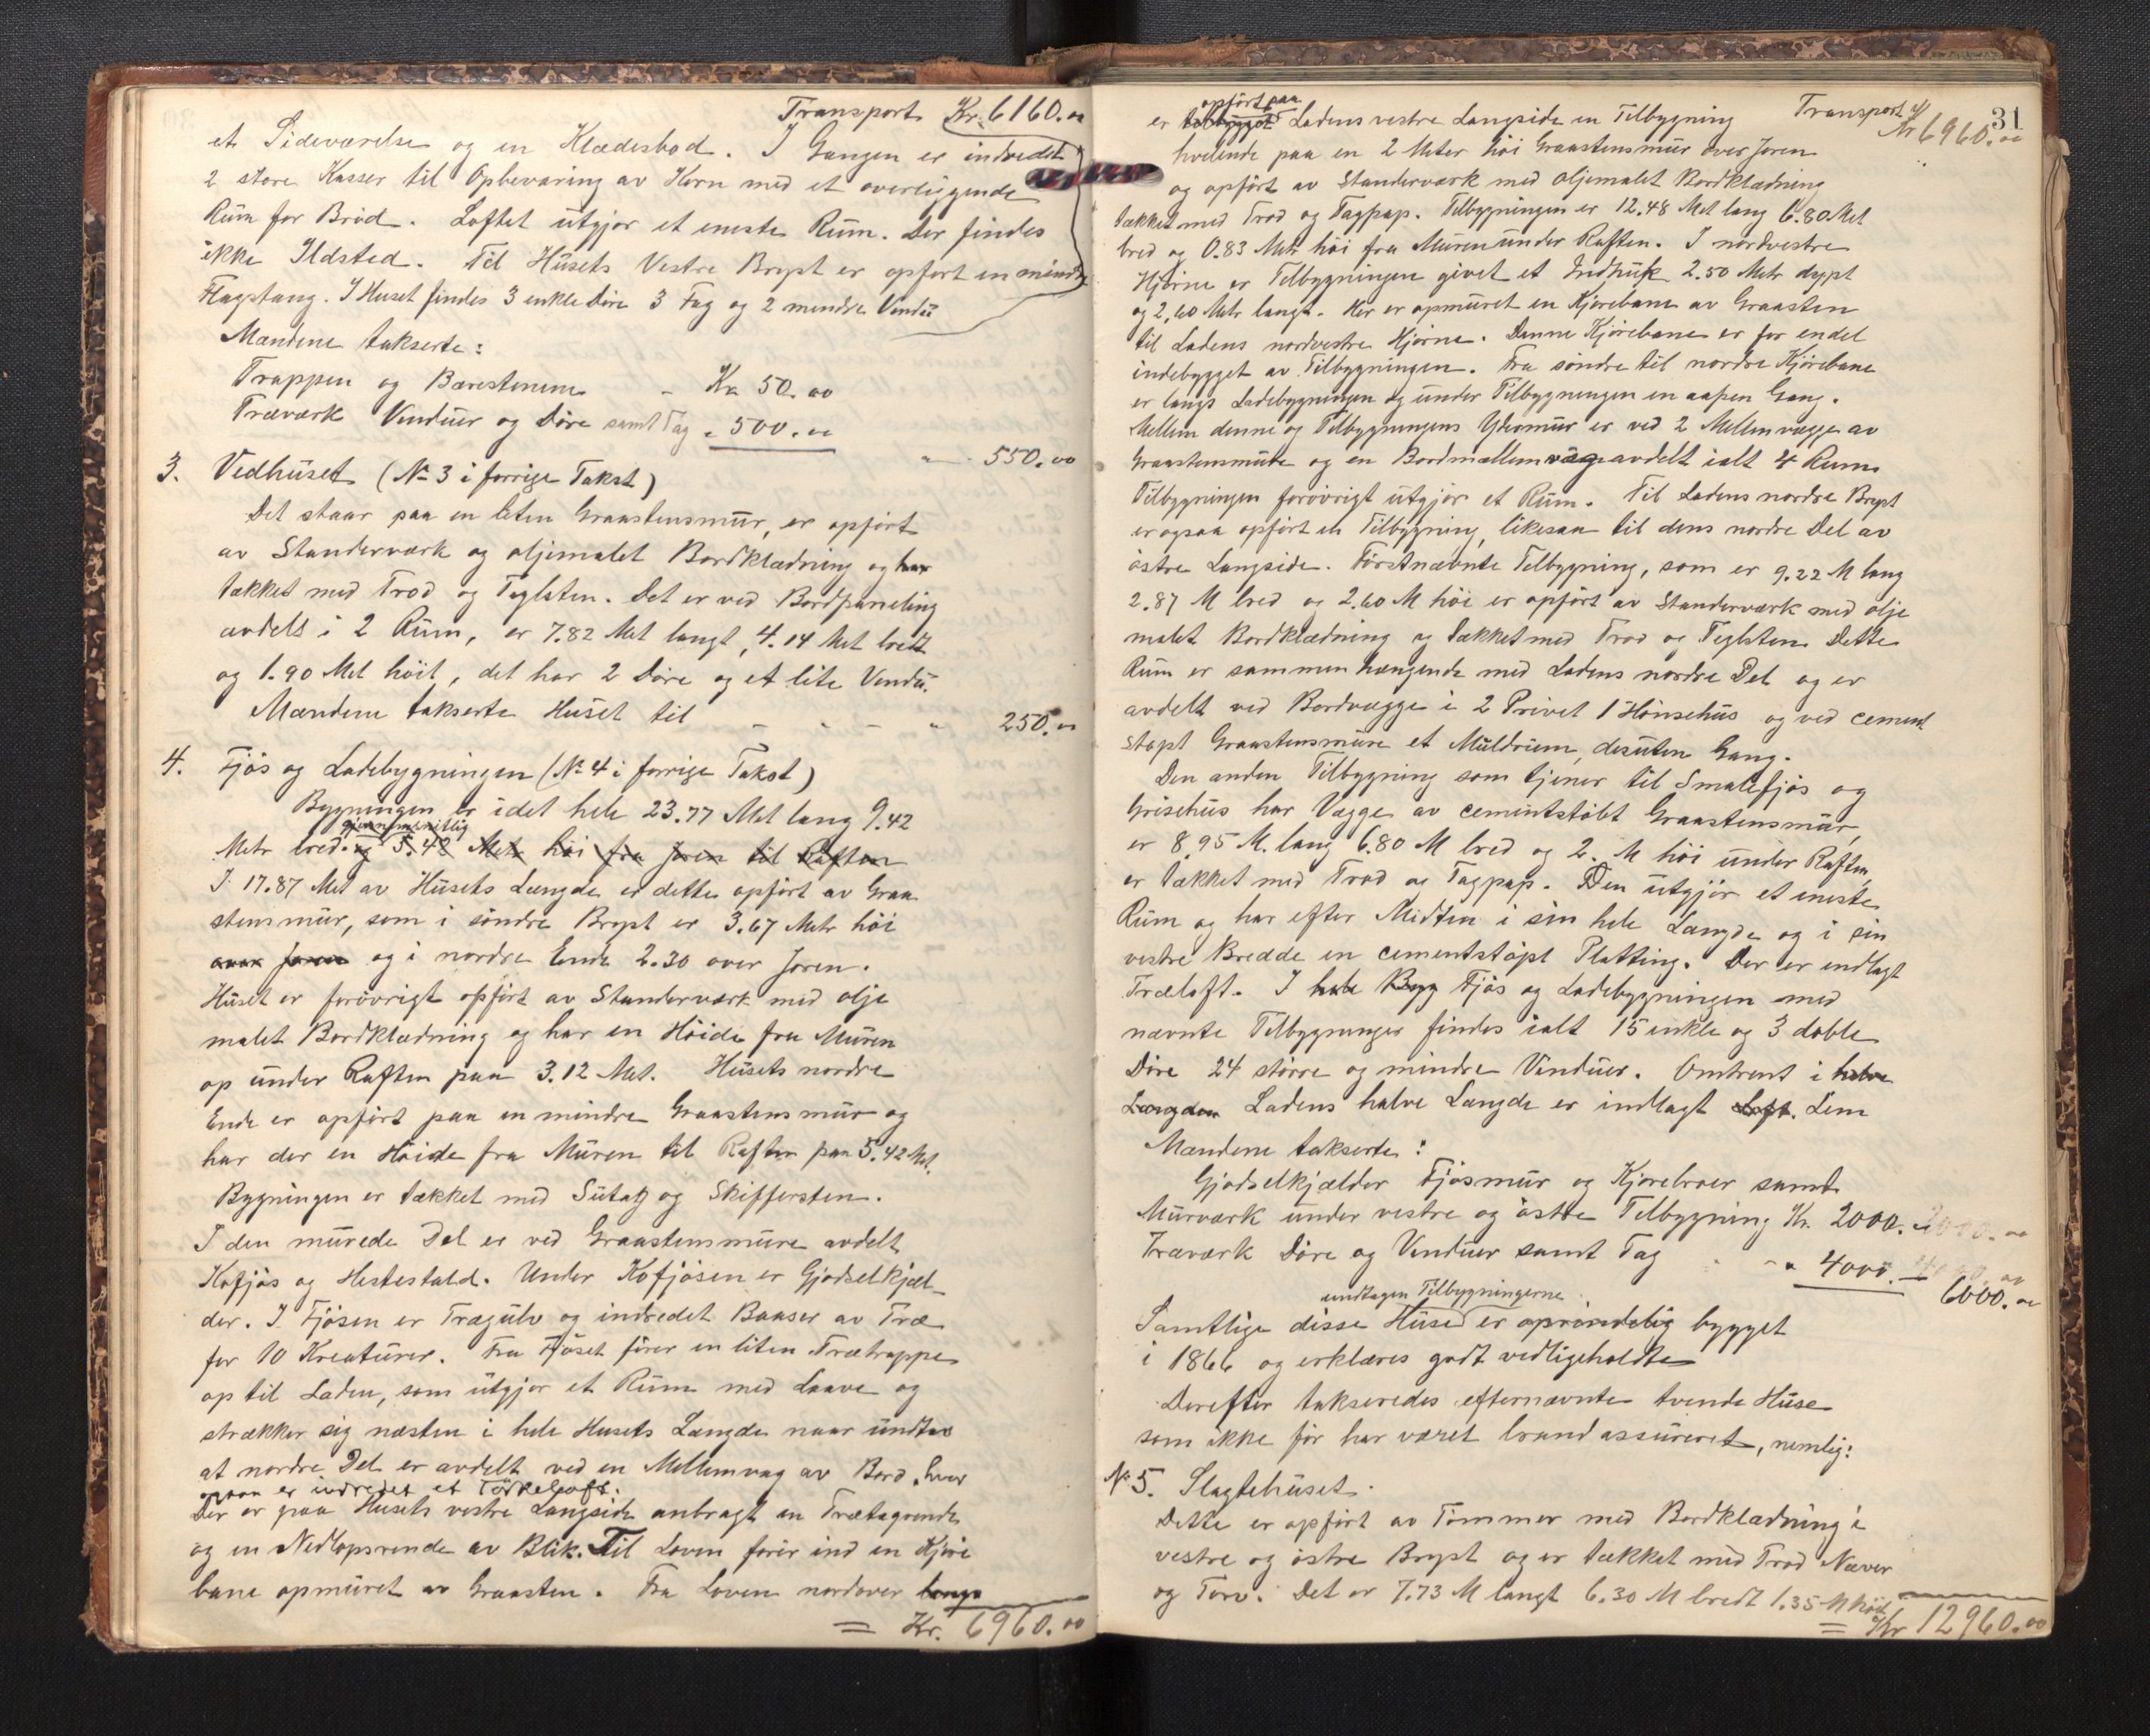 Transport Kr. 6160.00
et Sideværelse og en Klædesbod. I Gangen er indredet
2 store Kasser til Opbevaring av Korn med et overliggende
Rum for Brød. Loftet utgjør et eneste Rum. Der findes
ikke Ildsted. Til Husets Vestre Bryst er opført en mindre
Flagstang. I Huset findes 3 enkle Døre 3 Fag og 2 mindre Vindu
Mændene takserte:
Trappen og Bærestenene - Kr 50.00
Træværk Vinduer og Døre samt Tag " 500.00
" 550.00
3. Vedhuset (No 3 i forrige Takst)
Det staar paa en liten Graastensmur, er opført
av Standerværk og oljemalet Bordklædning og har
tækket med Trod og Teglsten. Det er ved Bordpaneling
avdelt i 2 Rum, er 7.82 Met langt, 4.14 Met bredt
og 1.90 Met høit, det har 2 Døre og et lite Vindu.
Mændene takserte Huset til - - - " 250.00
4. Fjøs og Ladebygningen (No 4 i forrige Takst)
Bygningen er i det hele 23.77 Met lang 9.42
gjennemsnitlig
Metr bred og 5.42 Metr høi fra Joren til Raften
I 17.87 Met av Husets Længde er dette opført av Graa
stensmur, som i søndre Bryst er 3.67 Metr høi
over Joren og i nordre Ende 2.30 over Joren.
Huset er forøvrigt opført av Standerværk med olje
malet Bordklædning og har en Høide fra Muren
op under Raften paa 3.12 Met. Husets nordre
Ende er opført paa en mindre Graastensmur og
har der en Høide fra Muren til Raften paa 5.42 Met.
Bygningen er tækket med Sutag og Skiffersten.
I den murede Del er ved Graastensmure avdelt
Kofjøs og Hestestald. Under Kofjøsen er Gjødselkjæl-
der. I Fjøsen er Trægulv og indredet Baaser av Træ
for 10 Kreaturer. Fra Fjøset fører en liten Trætrappe
op til Laden, som utgjør et Rum med Laave og
strækker sig næsten i hele Husets Længde naar undtas
at nordre Del er avdelt ved en Mellemvæg av Bord, hvor
opaa er indredet et Tørkeloft.
Der er paa Husets vestre Langside anbragt en Trætagrende
og en Nedløpsrende av Blik. Til Loven fører ind en Kjøre
bane opmuret av Graasten. Fra Loven nordover langs
= Kr. 6960.00
31
opført paa
er tilbygget Ladens vestre Langside en Tilbygning Transport Kr 6960.00
hvilende paa en 2 Meter høi Graastensmur over Joren
og opført av Standerværk med oljemalet Bordklædning
tækket med Trod og Tagpap. Tilbygningen er 12.48 Met lang 6.80 Met
bred og 0.83 Metr høi fra Muren under Raften. I nordvestre
Hjørne er Tilbygningen givet et Indhuk 2.50 Metr dypt
og 2,60 Metr langt. Her er opmuret en Kjørebane av Graasten
til Ladens nordvestre Hjørne. Denne Kjørebane er for endel
indebygget av Tilbygningen. Fra søndre til nordre Kjørebane
er langs Ladebygningen og under Tilbygningen en aapen Gang.
Mellem denne og Tilbygningens Ydermur er ved 2 Mellemvægge av
Graastensmure og en Bordmællemvæg avdelt ialt 4 Rum.
Tilbygningen forøvrigt utgjør et Rum. Til Ladens nordre Bryst
er ogsaa opført en Tilbygning, likesaa til dens nordre Del av
østre Langside. Førstnævnte Tilbygning, som er 9.22 M lang
2.87 M bred og 2.60 M høi er opført av Standerværk med olje
malet Bordklædning og tækket med Trod og Teglsten Dette
Rum er sammenhængende med Ladens nordre Del og er
avdelt ved Bordvægge i 2 Privet 1 Hønsehus og ved cement
støpt Graastensmure et Muldrum, desuten Gang.
Den anden Tilbygning som tjener til Smalefjøs og
Grisehus har Vægge av cementstøbt Graastensmur,
er 8.95 M. lang 6.80 M bred og 2. M høi under Raften,
er tækket med Trod og Tagpap. Den utgjør et eneste
Rum og har efter Midten i sin hele Længde og i sin
vestre Bredde en cementstøpt Platting. Der er indlagt
Træloft. I hele Byg Fjøs og Ladebygningen med
nævnte Tilbygninger findes ialt 15 enkle og 3 doble
Døre 24 større og mindre Vinduer. Omtrent i halve
Længden Ladens halve Længde er indlagt Loft. Lem
Mændene takserte:
Gjødselkjælder Fjøsmur og Kjørebroer samt
Murværk under vestre og østre Tilbygning Kr. 2000.00
Træværk Døre og Vinduer samt Tag - " 4000.—
6000.00
undtagen Tilbygningerne
Samtlige disse Huse er oprindelig bygget
i 1866 og erklæres godt vedligeholdte
Derefter takseredes efternævnte tvende Huse
som ikke før har været brandassureret, nemlig:
No 5. Slagtehuset.
Dette er opført av Tømmer med Bordklædning i
vestre og østre Bryst og er tækket med Trod Næver
og Torv. Det er 7.73 M langt 6.30 M bredt 1.35 M høit
= Kr 12960.00